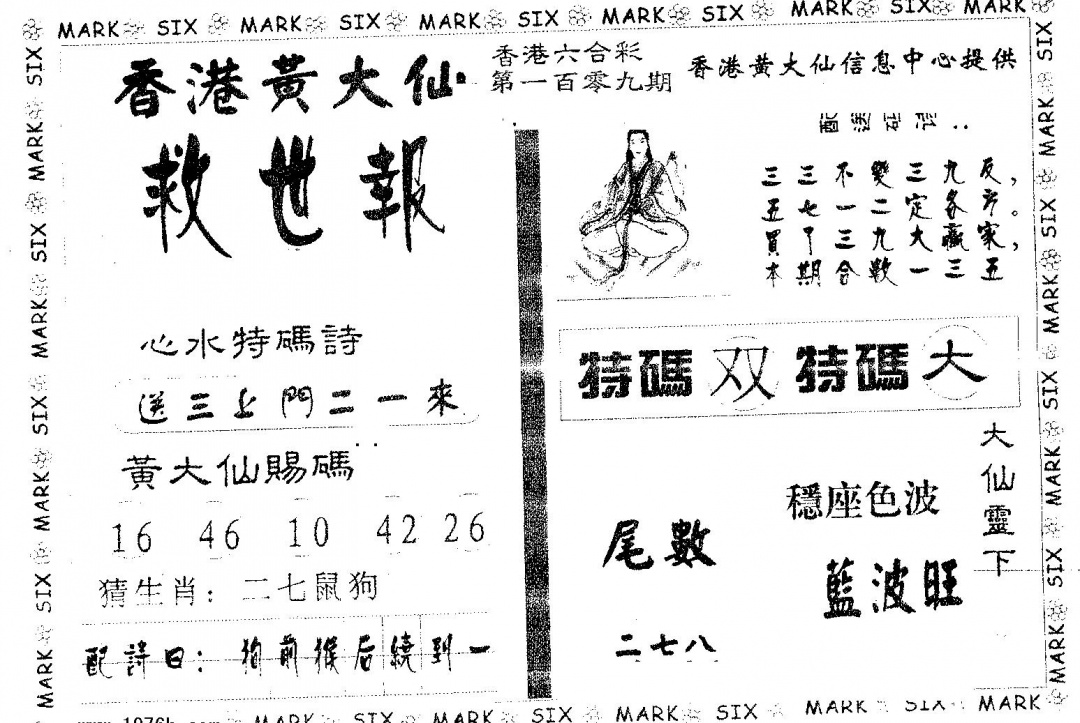 MARK SIX MARK SIX MARK SIX MARK SIX MARK SIX MARK
香港黃大仙
救世報
香港六合彩
第一百零九期
香港黃大仙信息中心提供
配送砸诗：
三三不變三九反，
五七一二定各方。
買中三九大贏家，
本期合數一三五
心水特碼詩
送三上門二一來
黃大仙賜碼
16 46 10 42 26
猜生肖：二七鼠狗
配詩曰：狗前猴后繞到一
特碼双特碼大
大仙靈下
穩座色波
藍波旺
尾數
二七八
MARK SIX MARK SIX MARK SIX MARK SIX MARK